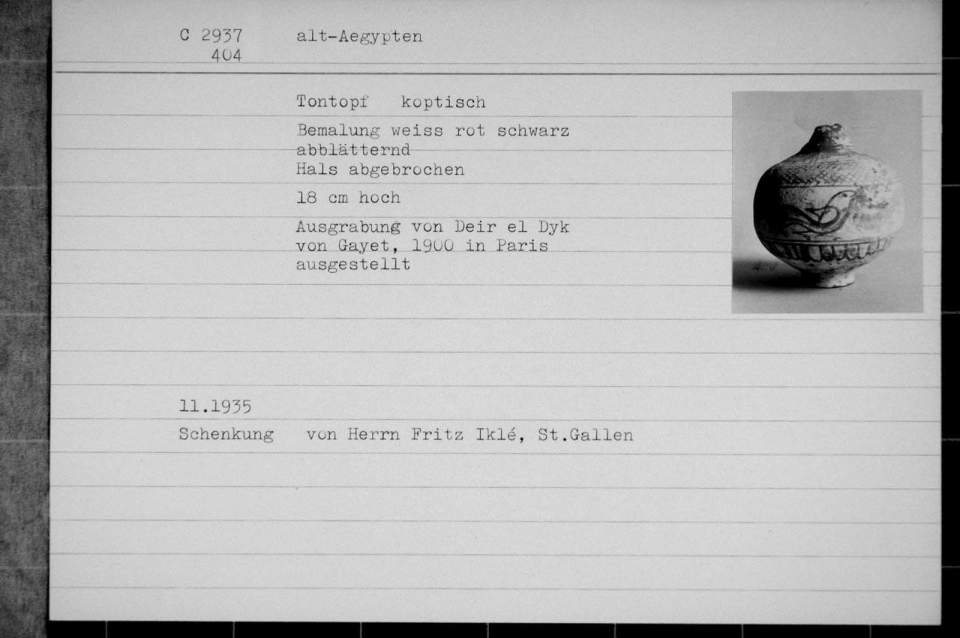 C 2937 alt-Aegypten
404
Tontopf koptisch
Bemalung weiss rot schwarz
abblätternd
Hals abgebrochen
18 cm hoch
Ausgrabung von Deir el Dyk
von Gayet, 1900 in Paris
ausgestellt
11.1935
Schenkung von Herrn Fritz Iklé, St.Gallen